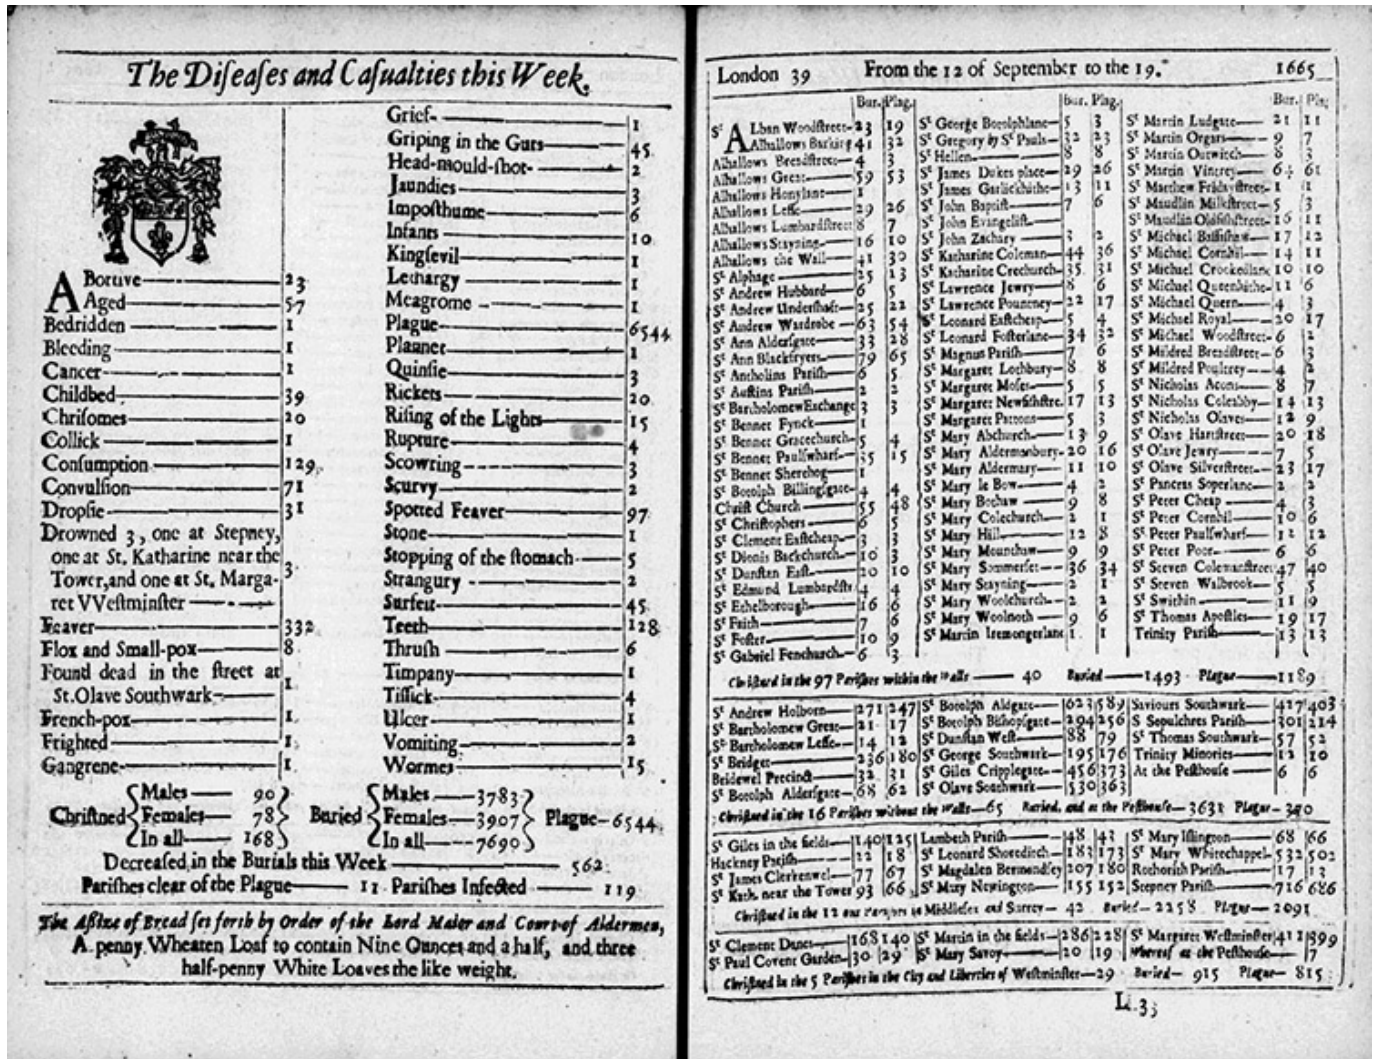 The Diſeaſes and Caſualties this Week.
ABortive 23
Aged 57
Bedridden 1
Bleeding 1
Cancer 1
Childbed 39
Chriſomes 20
Collick 1
Conſumption 129
Convulſion 71
Dropſie 31
Drowned 3, one at Stepney,
one at St. Katharine near the
Tower, and one at St. Marga-
ret VVeſtminſter 3
Feaver 332
Flox and Small-pox 8
Found dead in the ſtreet at
St. Olave Southwark 1
French-pox 1
Frighted 1
Gangrene 1
Grief 1
Griping in the Guts 45
Head-mould-ſhot 2
Jaundies 3
Impoſthume 6
Infants 10
Kingſevil 1
Lethargy 1
Meagrome 1
Plague 6544
Plannet 1
Quinſie 3
Rickets 20
Riſing of the Lights 15
Rupture 4
Scowring 3
Scurvy 2
Spotted Feaver 97
Stone 1
Stopping of the ſtomach 5
Strangury 2
Surfeit 45
Teeth 128
Thruſh 6
Timpany 1
Tiſſick 4
Ulcer 1
Vomiting 2
Wormes 15
Chriſtned Males 90 Females 78 In all 168
Buried Males 3783 Females 3907 In all 7690
Plague 6544
Decreaſed in the Burials this Week 562
Pariſhes clear of the Plague 11 Pariſhes Infected 119
The Aſſize of Bread ſet forth by Order of the Lord Maior and Court of Aldermen,
A penny Wheaten Loaf to contain Nine Ounces and a half, and three
half-penny White Loaves the like weight.
London 39 From the 12 of September to the 19. 1665
Bur. Plag.
St ALban Woodſtreet 23 19
Alhallows Barking 41 32
Alhallows Breadſtreet 4 3
Alhallows Great 59 53
Alhallows Honylane 1
Alhallows Leſſe 29 26
Alhallows Lumbardſtreet 8 7
Alhallows Stayning 16 10
Alhallows the Wall 41 30
St Alphage 25 13
St Andrew Hubbard 6 5
St Andrew Underſhaft 25 22
St Andrew Wardrobe 63 54
St Ann Alderſgate 33 28
St Ann Blackfryers 79 65
St Antholins Pariſh 6 5
St Auſtins Pariſh 2 2
St Bartholomew Exchange 3 3
St Bennet Fynck 1
St Bennet Gracechurch 5 4
St Bennet Paulſwharf 35 15
St Bennet Sherehog 1
St Botolph Billingſgate 4 4
Chriſt Church 55 48
St Chriſtophers 6 5
St Clement Eaſtcheap 3 3
St Dionis Backchurch 10 3
St Dunſtan Eaſt 20 10
St Edmund Lumbardſtr 4 4
St Ethelborough 16 6
St Faith 7 6
St Foſter 10 9
St Gabriel Fenchurch 6 3
Bur. Plag.
St George Botolphlane 5 3
St Gregory by St Pauls 32 23
St Hellen 8 8
St James Dukes place 29 26
St James Garlickhithe 13 11
St John Baptiſt 7 6
St John Evangeliſt
St John Zachary 3 2
St Katharine Coleman 44 36
St Katharine Creechurch 35 31
St Lawrence Jewry 8 6
St Lawrence Pountney 22 17
St Leonard Eaſtcheap 5 4
St Leonard Foſterlane 34 32
St Magnus Pariſh 7 6
St Margaret Lothbury 8 8
St Margaret Moſes 5 5
St Margaret Newfiſhſtre. 17 13
St Margaret Pattons 5 3
St Mary Abchurch 13 9
St Mary Aldermanbury 20 16
St Mary Aldermary 11 10
St Mary le Bow 4 2
St Mary Bothaw 9 8
St Mary Colechurch 2 1
St Mary Hill 12 8
St Mary Mounthaw 9 9
St Mary Sommerſet 36 34
St Mary Stayning 2 1
St Mary Woolchurch 2 2
St Mary Woolnoth 9 6
St Martin Iremongerlane 1 1
Bur. Plag.
St Martin Ludgate 21 11
St Martin Orgars 9 7
St Martin Outwitch 8 3
St Martin Vintrey 61
St Matthew Fridayſtreet 1 1
St Maudlin Milkſtreet 5 3
St Maudlin Oldfiſhſtreet 16 11
St Michael Baſſiſhaw 17 12
St Michael Cornhil 14 11
St Michael Crookedlane 10 10
St Michael Queenhithe 11 6
St Michael Quern 4 3
St Michael Royal 20 17
St Michael Woodſtreet 6 2
St Mildred Breadſtreet 6 3
St Mildred Poultrey 4 2
St Nicholas Acons 8 7
St Nicholas Coleabby 14 13
St Nicholas Olaves 12 9
St Olave Hartſtreet 20 18
St Olave Jewry 7 5
St Olave Silverſtreet 23 17
St Pancras Soperlane 2 2
St Peter Cheap 4 3
St Peter Cornhil 10 6
St Peter Paulſwharf 12 12
St Peter Poor 6 6
St Steven Colemanſtreet 47 40
St Steven Walbrook 5 5
St Swithin 11 9
St Thomas Apoſtles 19 17
Trinity Pariſh 13 13
Chriſtned in the 97 Pariſhes within the Walls 40 Buried 1493 Plague 1189
St Andrew Holborn 271 247
St Bartholomew Great 21 17
St Bartholomew Leſſe 14 12
St Bridget 236 180
Bridewel Precinct 32 31
St Botolph Alderſgate 68 62
St Botolph Aldgate 623 589
St Botolph Biſhopſgate 294 256
St Dunſtan Weſt 88 79
St George Southwark 195 176
St Giles Cripplegate 456 373
St Olave Southwark 530 363
Saviours Southwark 427 403
S Sepulchres Pariſh 301 214
St Thomas Southwark 57 52
Trinity Minories 12 10
At the Peſthouſe 6 6
Chriſtned in the 16 Pariſhes without the Walls 65 Buried, and at the Peſthouſe 3631 Plague
St Giles in the fields 140 125
Hackney Pariſh 22 18
St James Clerkenwel 77 67
St Kath. near the Tower 93 66
Lambeth Pariſh 48 43
St Leonard Shoreditch 183 173
St Magdalen Bermondſey 207 180
St Mary Newington 155 152
St Mary Iſlington 68 66
St Mary Whitechappel 532 502
Rothorith Pariſh 17 13
Stepney Pariſh 716 686
Chriſtned in the 12 out Pariſhes in Middleſex and Surrey 42 Buried 2258 Plague 2091
St Clement Danes 168 140
St Paul Covent Garden 30 29
St Martin in the fields 286 228
St Mary Savoy 20 19
St Margaret Weſtminſter 411 399
Whereof at the Peſthouſe 7
Chriſtned in the 5 Pariſhes in the City and Liberties of Weſtminſter 29 Buried 915 Plague 815